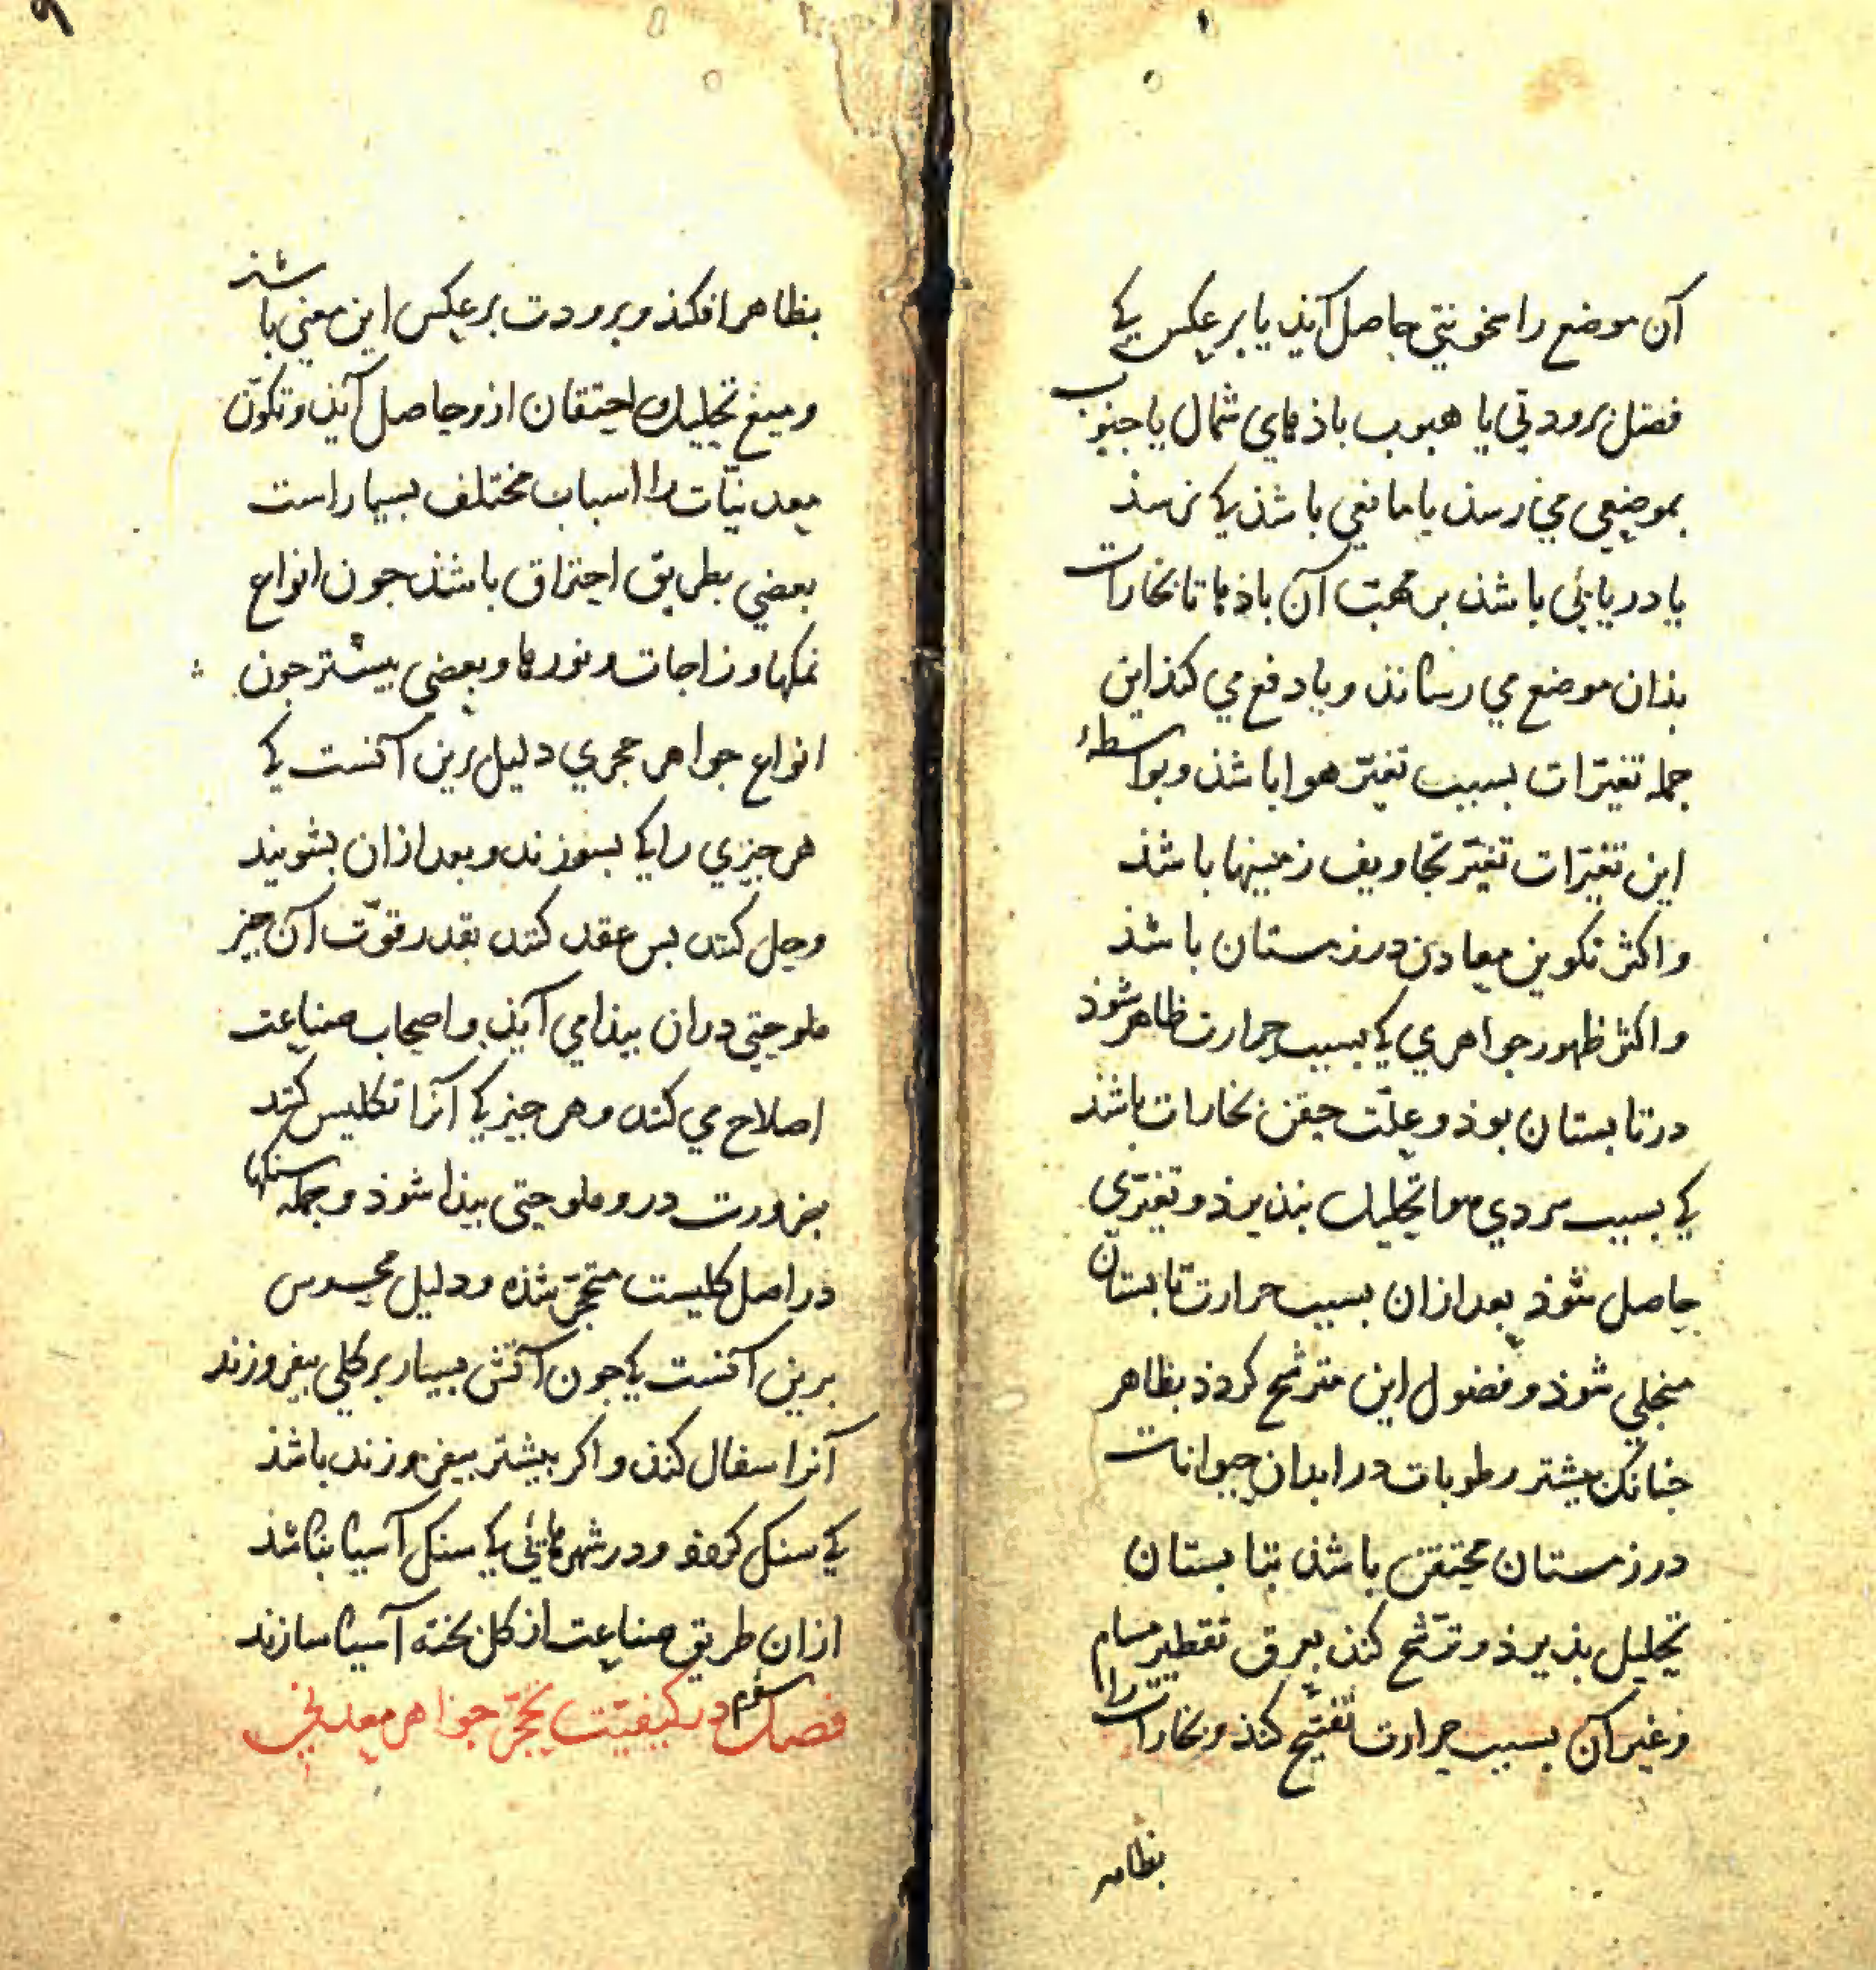 آن موضع را سخونتی حاصل آیذ یا برعکس کی
فصل برودتی یا هبوب باذهای شمال یا جنوب
بموضعی می رسذ یا مانعی باشذ کی نرسذ
یا دریائی باشذ بر مهبّ آن باذها تا بخارات
بذان موضع می رساند و یا دفع می کنذ این
جمله تغیّرات بسبب تغیّر هوا باشذ و بواسطهٔ
این تغیّرات تغیّر تجاویف زمینها باشذ
و اکثر تکوین معادن در زمستان باشذ
و اکثر ظهور جواهری کی بسبب حرارت ظاهر شوذ
در تابستان بوذ و علّت حقن بخارات باشذ
کی بسبب سردی هوا تحلیل بنذیرذ و تغیّری
حاصل شوذ بعد ازان بسبب حرارت تابستان
منحلی شوذ و فضول این مترشح کردذ بظاهر
جنانک بیشتر رطوبات در ابدان حیوانات
در زمستان محتقن باشذ بتابستان
تحلیل بذیرذ و ترشّح کند بعرق تقطیر مسام
و غیر آن بسبب حرارت تفتیح کنذ و بخارات را
بظاهر
بظاهر افکنذ و برودت برعکس این معنی باشذ
و منع تحلیل و احتقان ازو حاصل آیذ و تکوّن
معدنیّات را اسباب مختلف بسیار است
بعضی بطریق احتراق باشذ جون انواع
نمکها و زاجات و نورها و بعضی بیشتر جون
انواع جواهر حجری دلیل برین آنست کی
هر جیزی را کی بسوزند و بعد ازان بشویند
و حل کنند بس عقد کنند بقدر قوّت آن جیز
ملوحتی دران بیذا می آیذ و اصحاب صناعت
اصلاح می کنند و هر جیز کی آنرا تکلیس کنند
بضرورت درو ملوحتی بیذا شوذ و جمله سنکها
در اصل کلیست متحجّر شذه و دلیل محسوس
برین آنست کی جون آتش بسیار بر کلی بیفروزند
آنرا سفال کند و اکر بیشتر بیفروزند باشذ
کی سنک کردد و در شهرهائی کی سنک آسیا نباشذ
ازان طریق صناعت از کل بخته آسیا سازند
فصل سوم در کیفیّت تحجّر جواهر معدنی